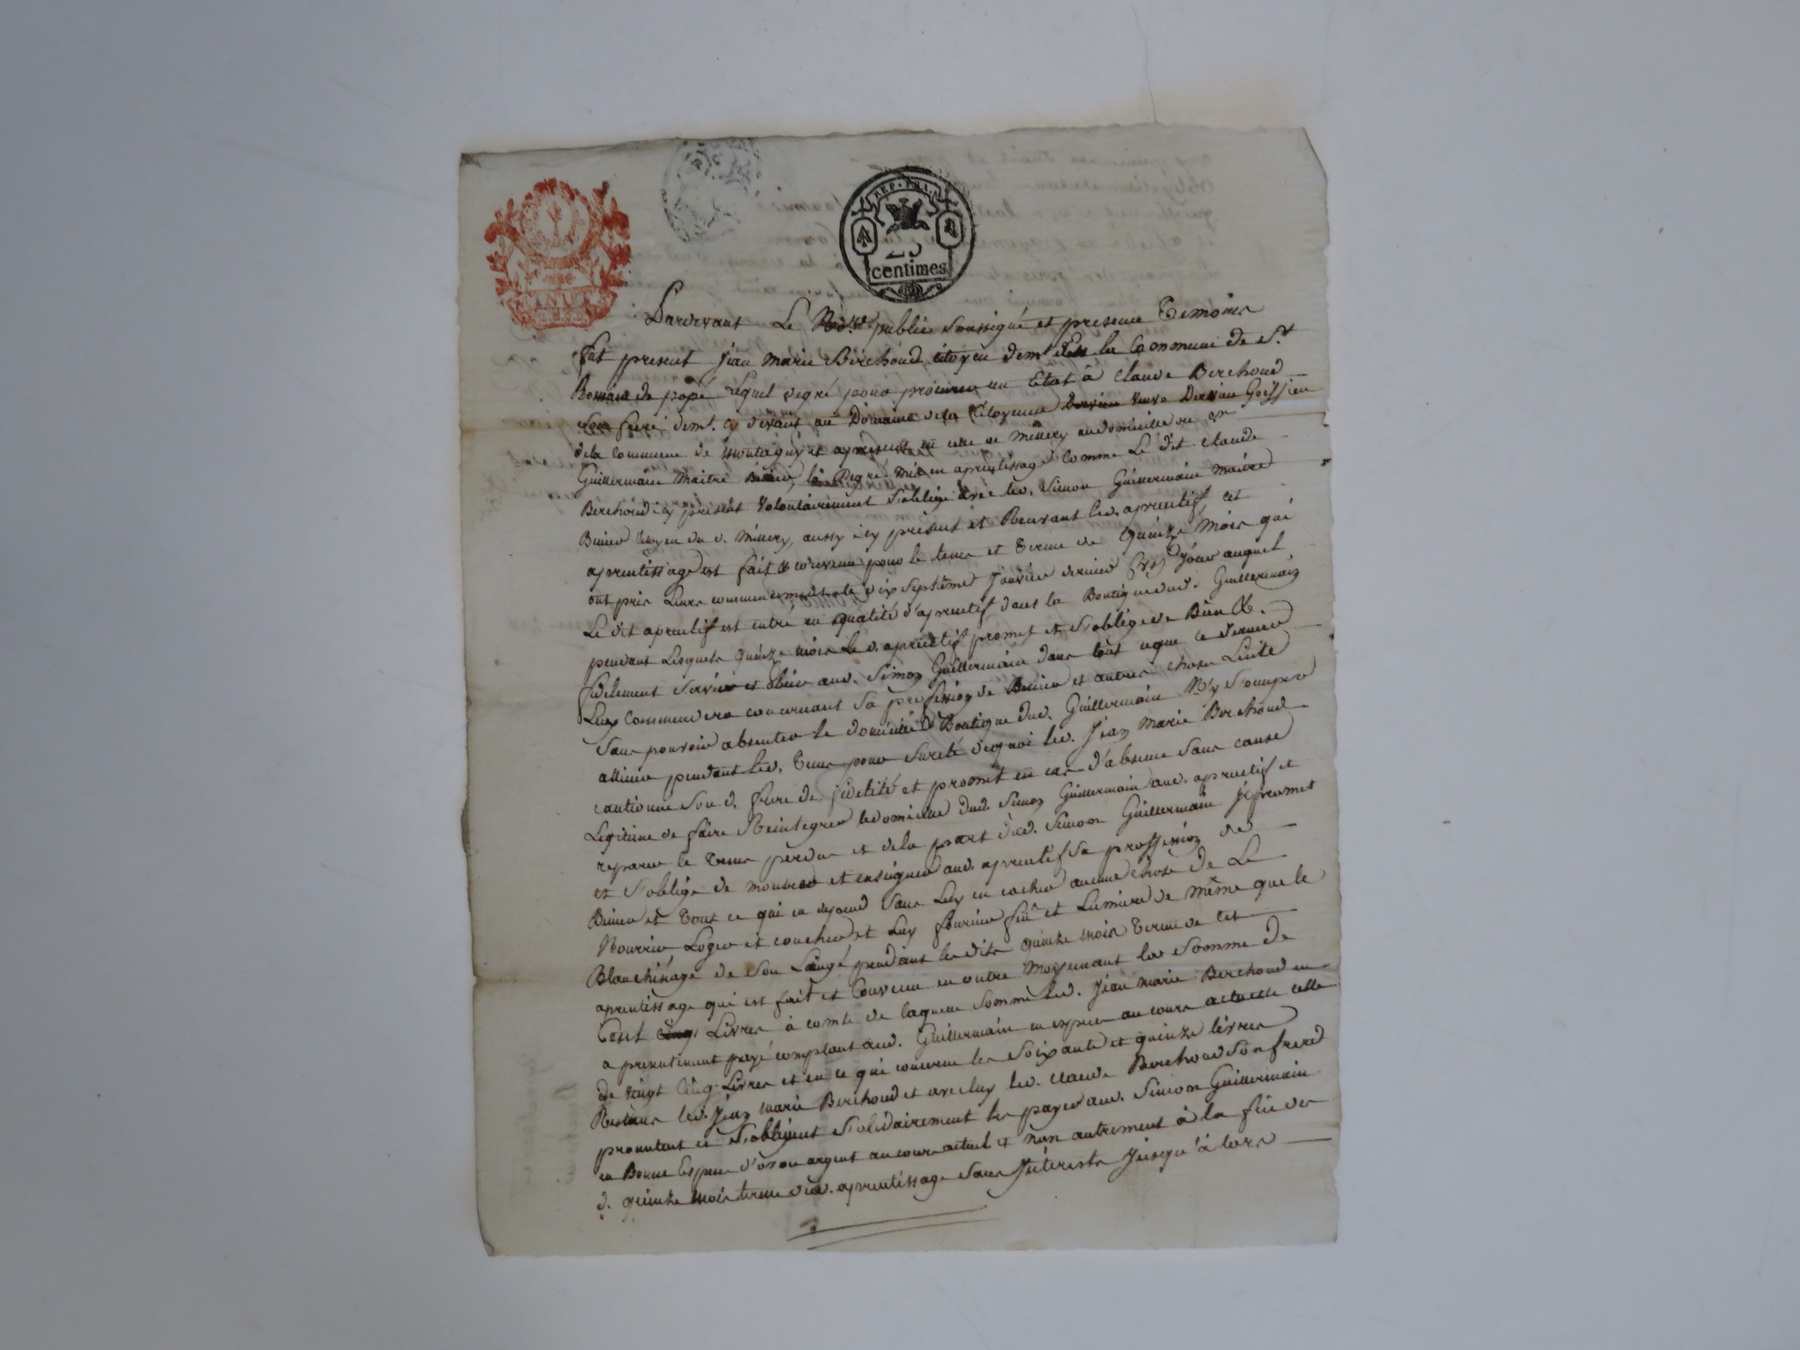 REP. FRA.
25
centimes
Pardevant Le No.re public soussigné et presence Temoins
fut present jean marie Berchoud citoyen dem.t dans la Commune de S.t
Romain de popé Lequel degré pour procurer un Etat à Claude Berchoud
son frere dem.t cy devant au Domaine de la Citoyenne veuve
de la commune de Montagny et apresent en celle de Millery au domicile de
Guillermain Maitre le degré mis en aprentissage Comme Le dit Claude
Berchoud icy présent volontairement s'oblige avec led. Simon Guillermain maitre
Citoyen du d. Millery, aussy icy présent et Recevant led. aprentif, cet
aprentissage est fait et convenu pour le tems et terme de Quinze Mois qui
ont pris Leurs commencement le dix Septême Janvier dernier jour auquel
Le dit aprentif est entré en qualité d'aprentif dans la Boutique dud. Guillermain
pendant Lesquels Quinze mois Le d. aprentif promet et s'oblige de Bien &
fidelement servir et obéir aud. Simon Guillermain dans tout ce que ce dernier
Luy Commendera concernant sa profession de et autres chose Licite
Sans pouvoir absenter le domicile & Boutique dud. Guillermain Ny s'ocuper
allieur pendant led. tems pour sureté de quoi led. Jean Marie Berchoud
cautionne Son d. frere de fidelité et promet en cas d'absence sans cause
Legitime de faire Reintegrer le domicile dud. Simon Guillermain aud. aprentif et
reparer le tems perdu et de la part dud. Simon Guillermain Il promet
et s'oblige de montrer et enseigner aud. aprentif sa proffession de
et tout ce qui en depend sans Luy en cacher aucune chose de Le
Nourrir Loger et coucher et Luy fournir feu et Lumiere de même que le
Blanchisage de son Linge pendant les dits quinze mois terme de cet
aprentissage qui est fait et Convenu en outre Moyennant la Somme de
Cent Livres à comte de laquelle somme led. Jean marie Berchoud en
a presentement payé comptant aud. Guillermain en espece au cours actuelle celle
de vingt Cinq Livres et en ce qui concerne les soixante et quinze livres
Restans led. Jean marie Berchoud et avec luy led. Claude Berchoud son frere
promettent et s'obligent solidairement les payer aud. Simon Guillermain
en Bonne Espece d'or ou argent au cours actuel et non autrement à la fin des
d. quinze mois terme dud. aprentissage sans Intérests Jusqu'à lors